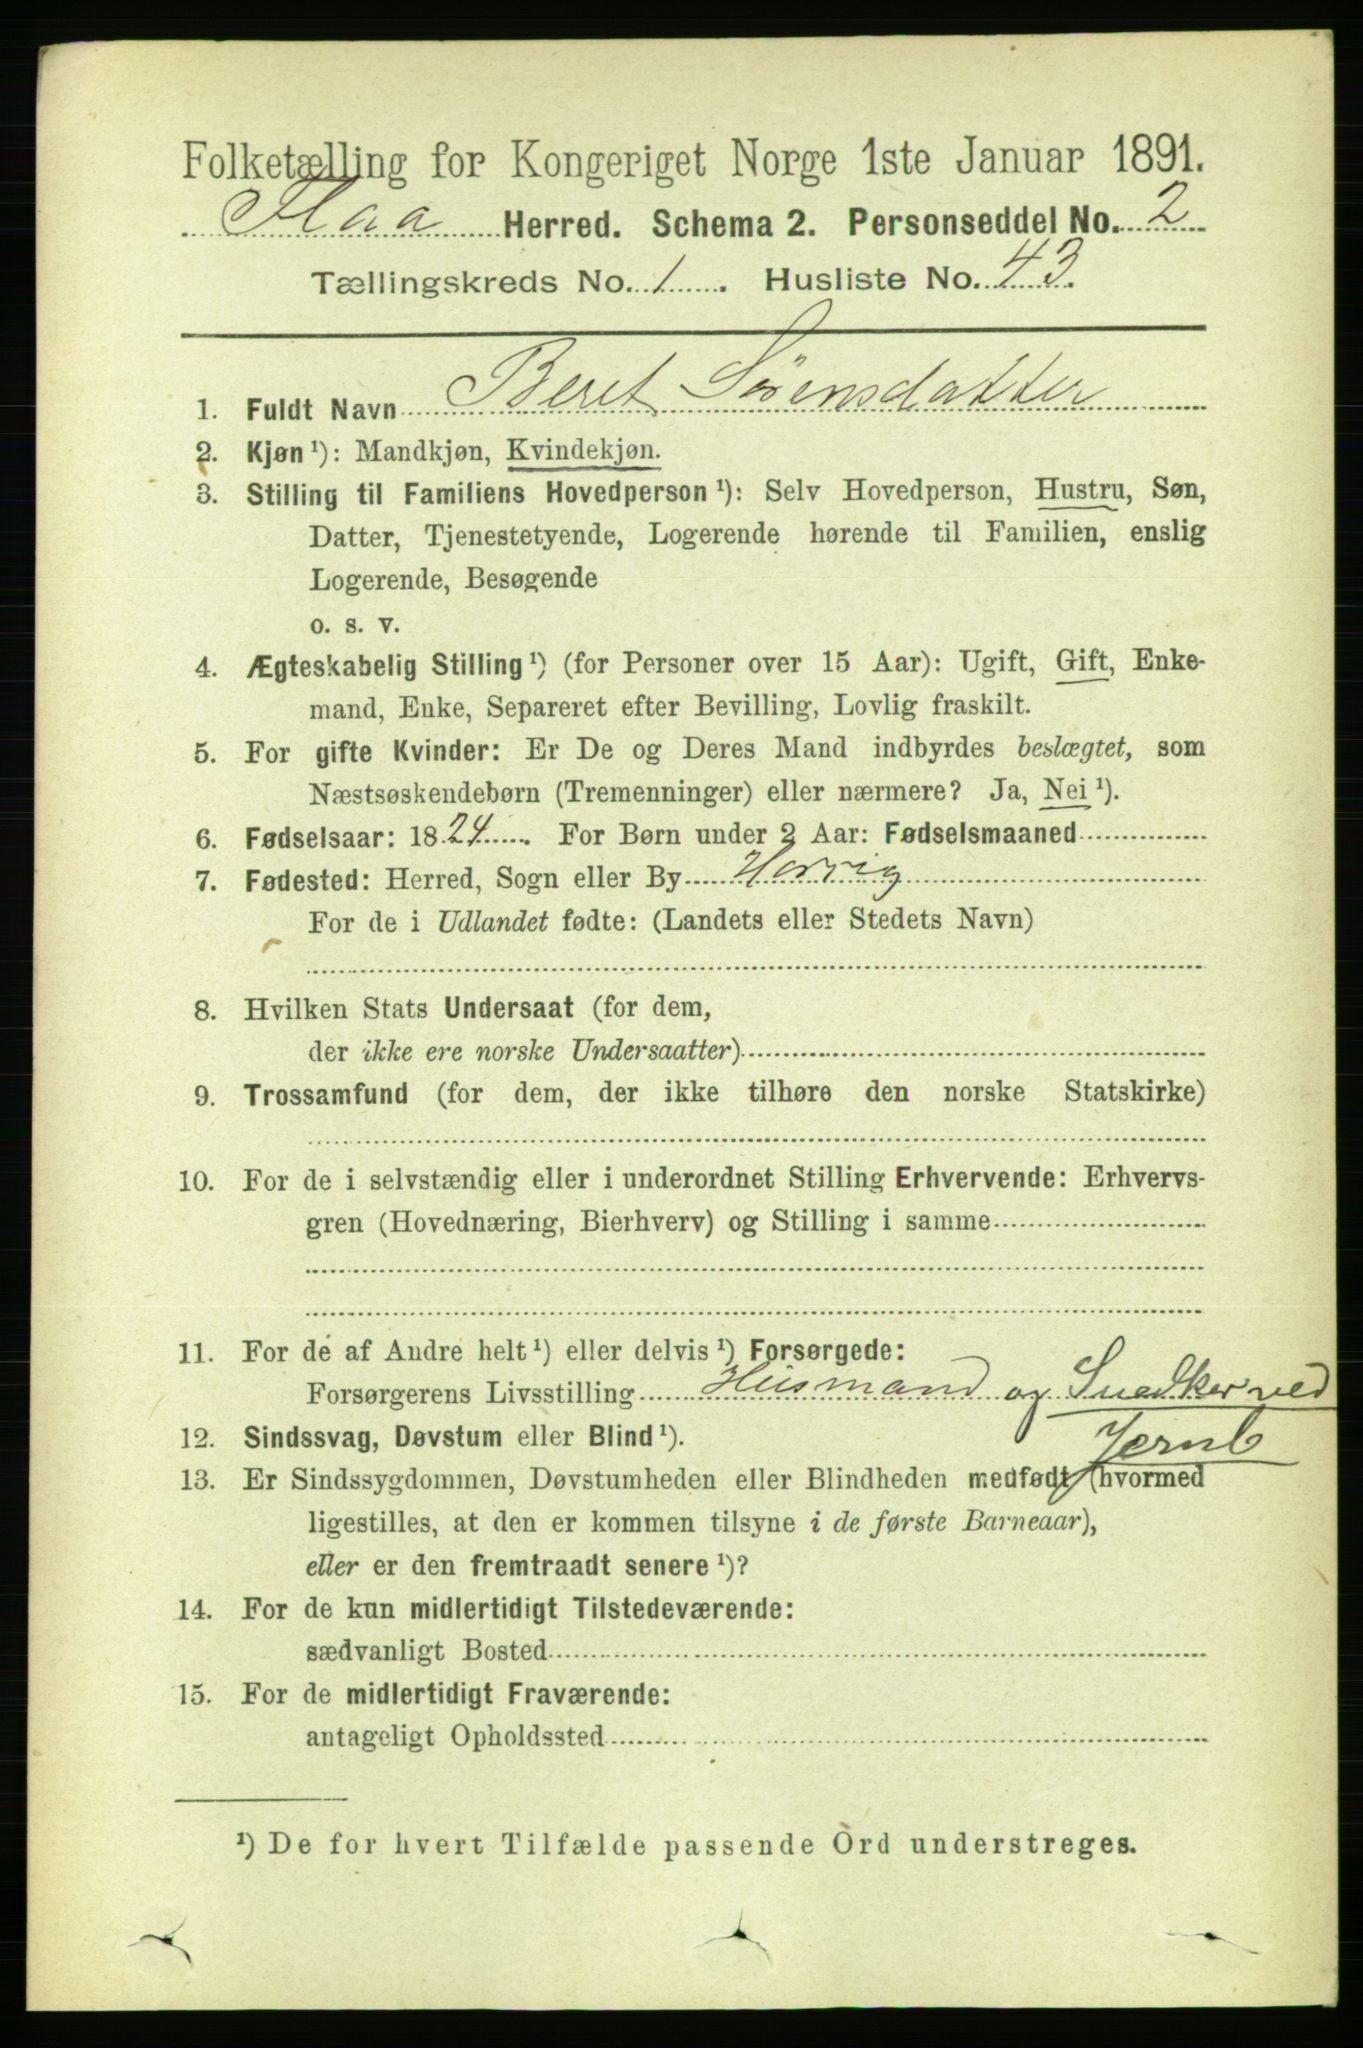 Folketælling for Kongeriget Norge 1ste Januar 1891.
Flaa Herred. Schema 2. Personseddel No. 2
Tællingskreds No. 1. Husliste No. 43.
1. Fuldt Navn Beret Sörensdatter
2. Kjøn ¹): Mandkjøn, Kvindekjøn.
3. Stilling til Familiens Hovedperson ¹): Selv Hovedperson, Hustru, Søn,
Datter, Tjenestetyende, Logerende hørende til Familien, enslig
Logerende, Besøgende
o. s. v.
4. Ægteskabelig Stilling ¹) (for Personer over 15 Aar): Ugift, Gift, Enke-
mand, Enke, Separeret efter Bevilling, Lovlig fraskilt.
5. For gifte Kvinder: Er De og Deres Mand indbyrdes beslægtet, som
Næstsøskendebørn (Tremenninger) eller nærmere? Ja, Nei ¹).
6. Fødselsaar: 1824. For Børn under 2 Aar: Fødselsmaaned
7. Fødested: Herred, Sogn eller By Horrig
For de i Udlandet fødte: (Landets eller Stedets Navn)
8. Hvilken Stats Undersaat (for dem,
der ikke ere norske Undersaatter)
9. Trossamfund (for dem, der ikke tilhøre den norske Statskirke)
10. For de i selvstændig eller i underordnet Stilling Erhvervende: Erhvervs-
gren (Hovednæring, Bierhverv) og Stilling i samme
11. For de af Andre helt ¹) eller delvis ¹) Forsørgede:
Forsørgerens Livsstilling Husmand og Snedker ved
Jernb
12. Sindssvag, Døvstum eller Blind ¹).
13. Er Sindssygdommen, Døvstumheden eller Blindheden medfødt (hvormed
ligestilles, at den er kommen tilsyne i de første Barneaar),
eller er den fremtraadt senere ¹)?
14. For de kun midlertidigt Tilstedeværende:
sædvanligt Bosted
15. For de midlertidigt Fraværende:
antageligt Opholdssted
¹) De for hvert Tilfælde passende Ord understreges.